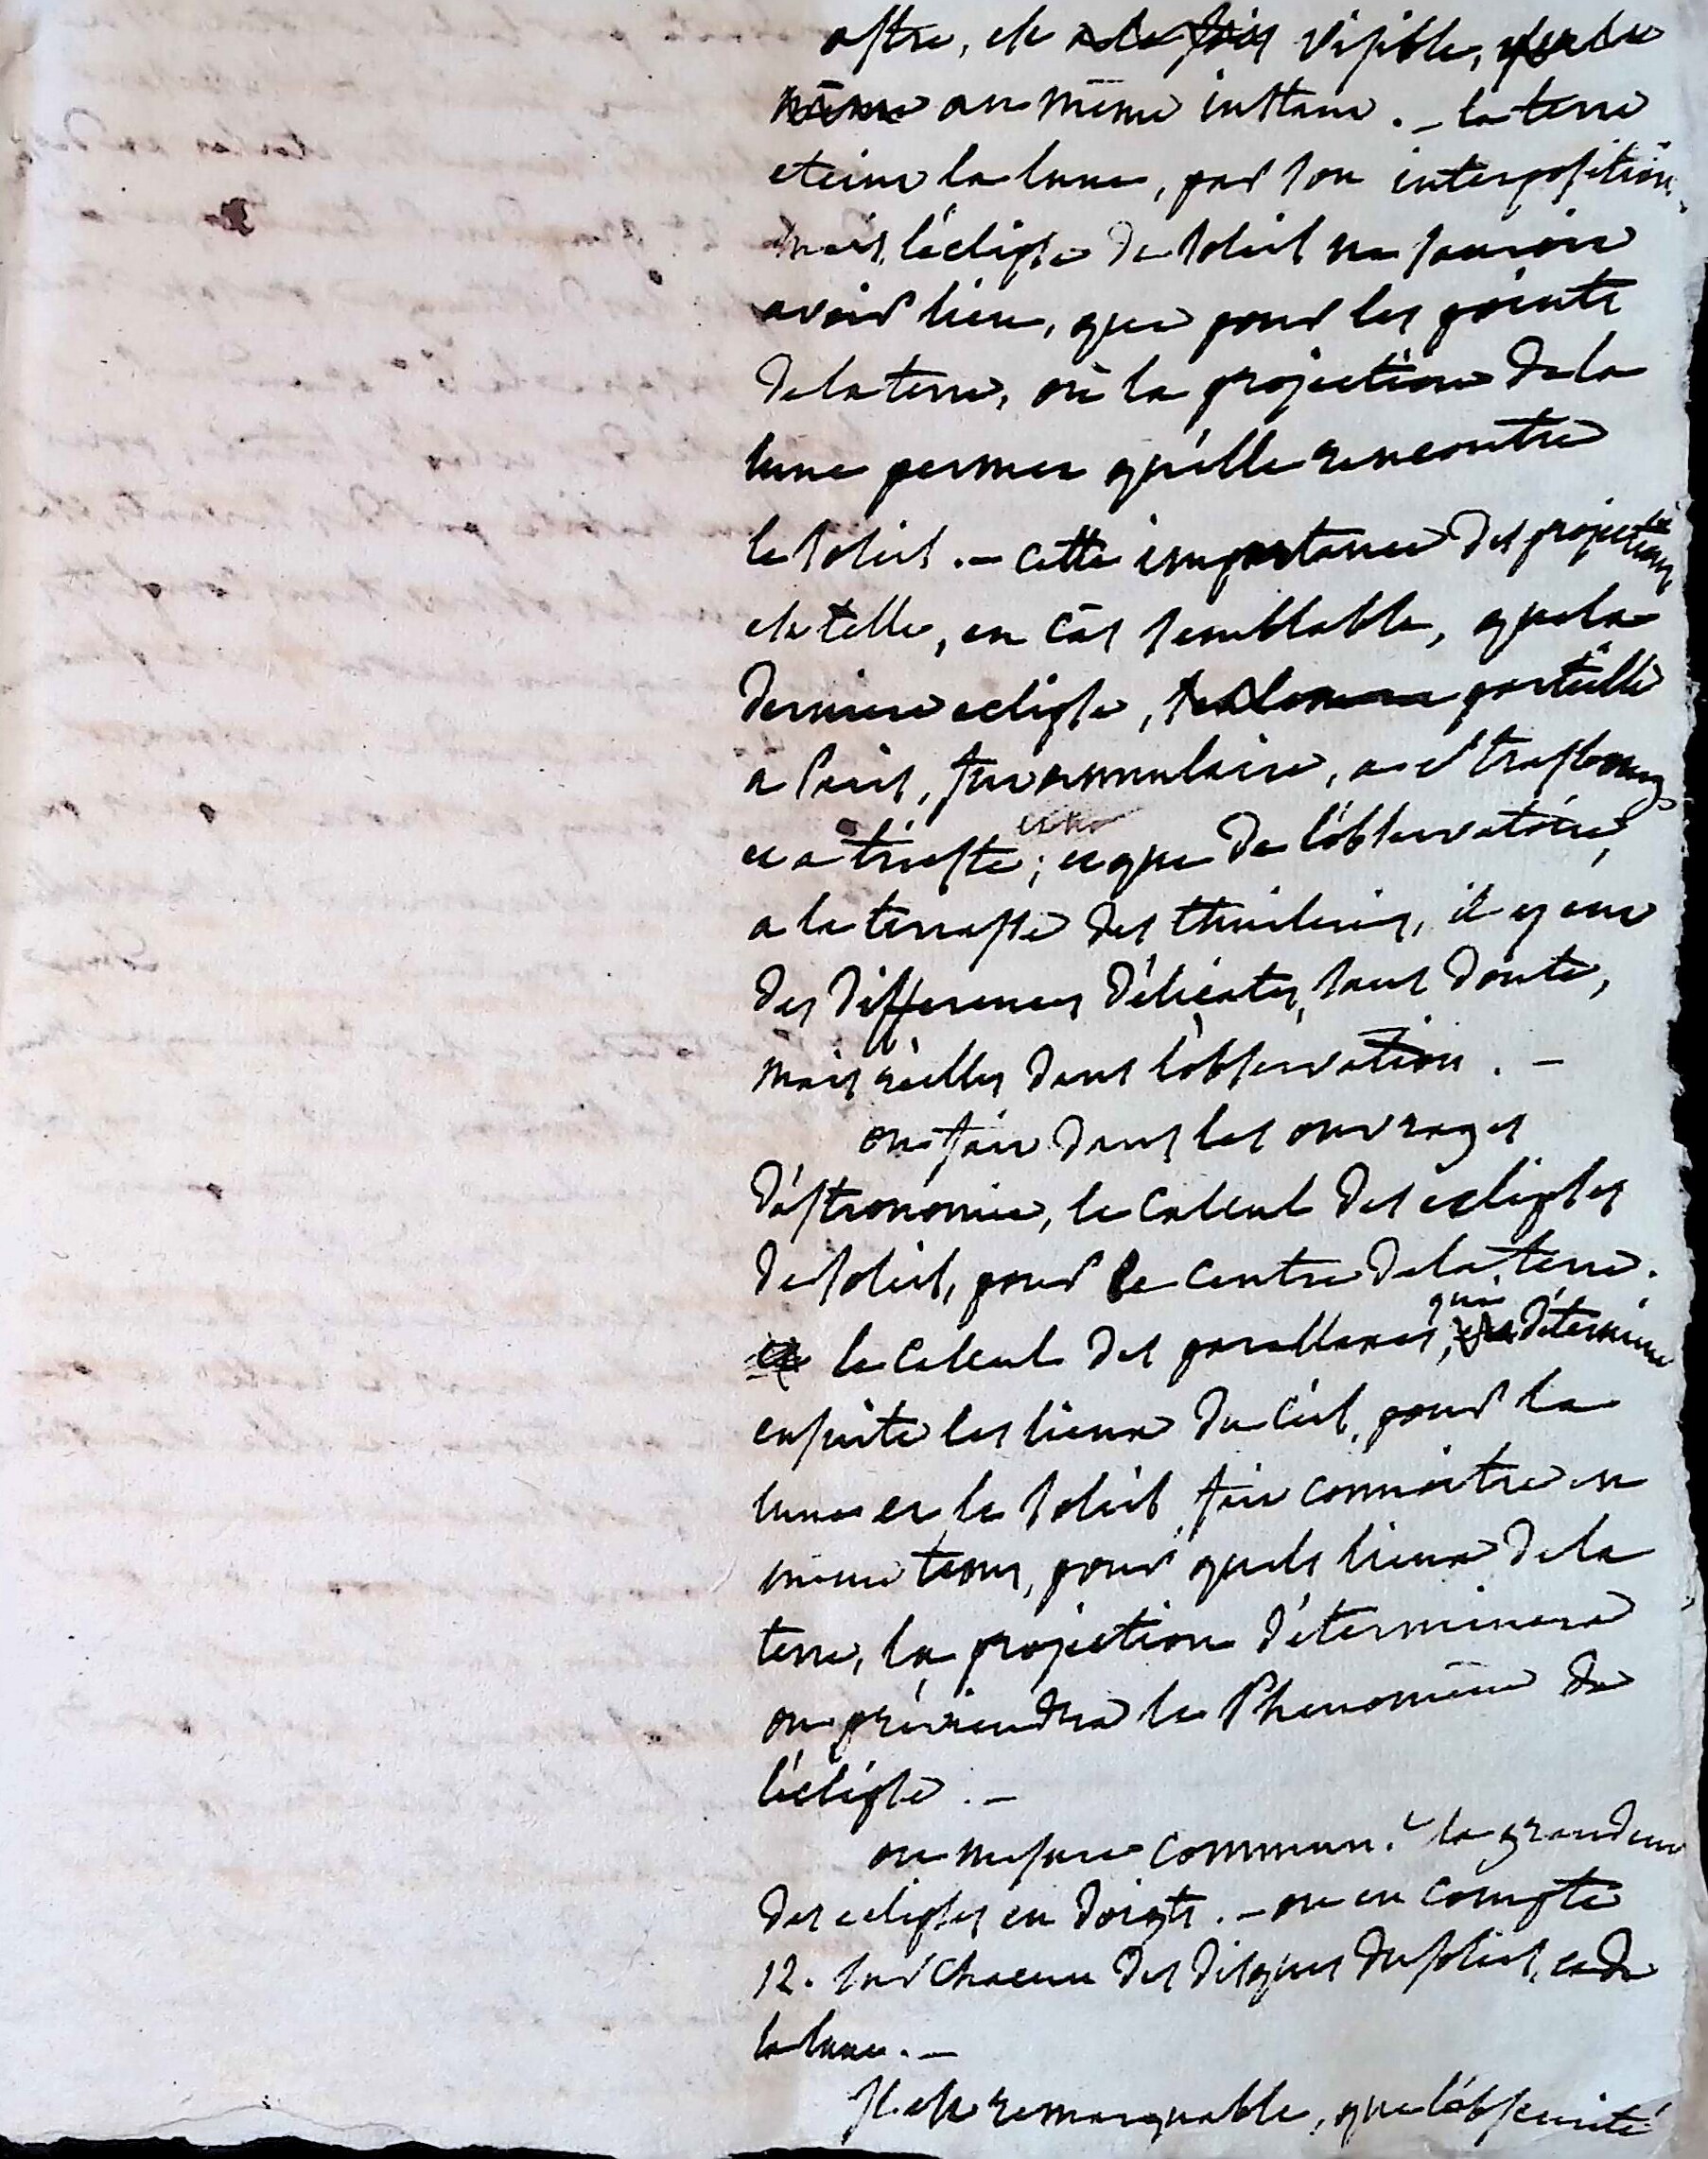 astre, est a la fois visible, 
même au même instant. – la terre
eteint la lune, par son interposition,
mais l'éclipse de soleil ne sauroit
avoir lieu, que pour les points
de la terre, où la projection de la
lune permet qu'elle rencontre
le soleil. – cette importance des projections
est telle, en cas semblable, que la
derniere eclipse, partielle
a Paris, fut annulaire, a Strasbourg
et a trieste; et que de l'observatoire,
a la terrasse des thuileries, il y eut
des differences délicates, sans doute,
mais réelles dans l'observation. –
on fait dans les ouvrages
d'astronomie, le calcul des eclipses
de soleil, pour le centre de la terre.
le calcul des parallaxes, qui détermine
ensuite les lieux du ciel, pour la
lune et le soleil, fait connoitre en
même tems, pour quels lieux de la
terre, la projection déterminera
ou préviendra le Phenomène de
l'éclipse. –
on mesure commun.t la grandeur
des eclipses en doigts. – on en compte
12. sur chacun des disques du soleil, et de
la lune. –
Il est remarquable, que l'obscurité